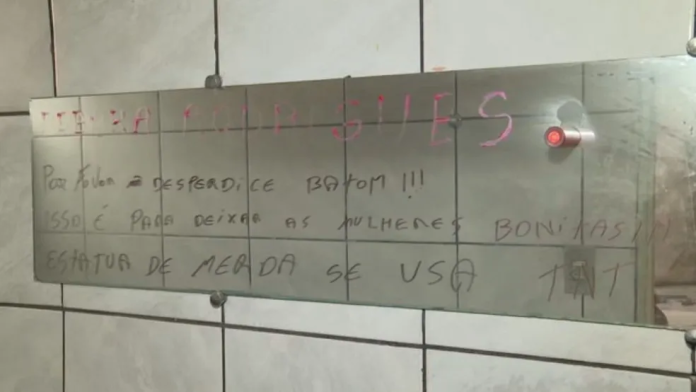 RODRIGUES
POR FAVOR Ñ DESPERDICE BATOM !!!
ISSO É PARA DEIXAR AS MULHERES BONITAS!!!
ESTATUA DE MERDA SE USA TNT